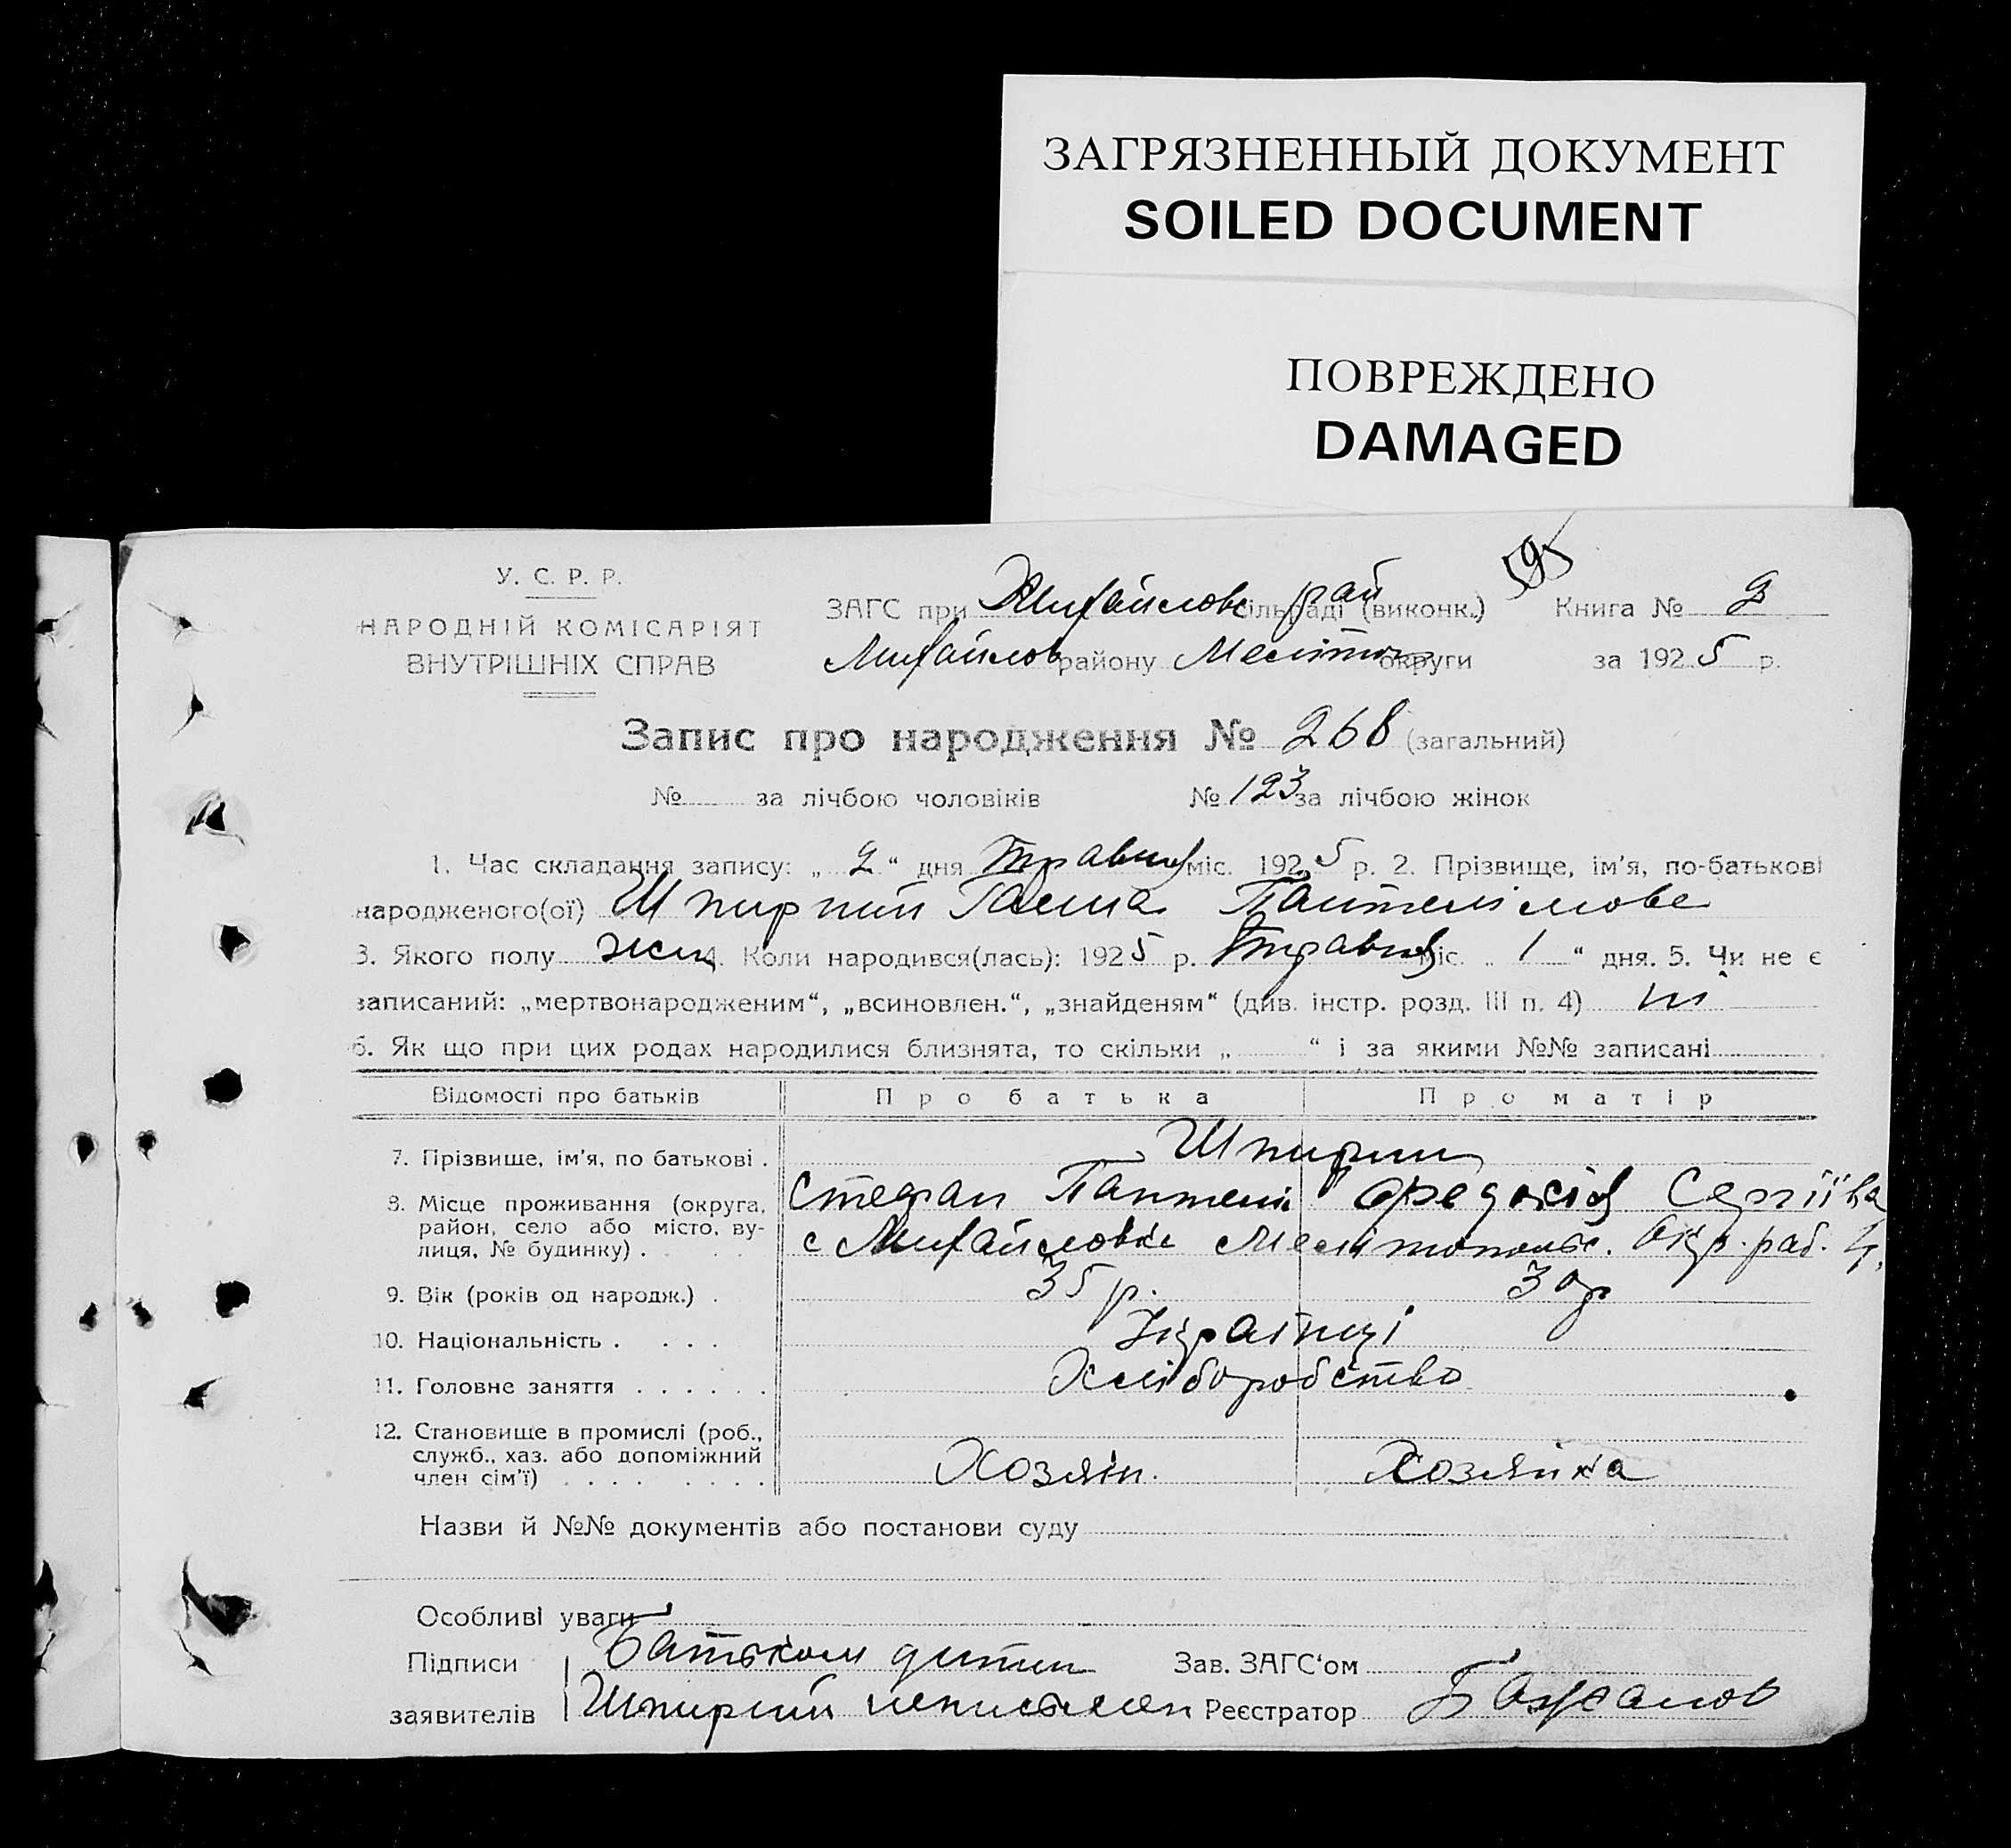 ЗАГРЯЗНЕННЫЙ ДОКУМЕНТ
SOILED DOCUMENT
ПОВРЕЖДЕНО
DAMAGED
У. С. Р. Р.
НАРОДНІЙ КОМІСАРІЯТ
ВНУТРІШНІХ СПРАВ
ЗАГС при Михайлов сільраді рай (виконк.) Книга № 2
Михайлов району Меліт округи за 1925 р.
Запис про народження № 268 (загальний)
№ за лічбою чоловіків № 123 за лічбою жінок
1. Час складання запису: „ 2 “ дня травня міс. 1925 р. 2. Прізвище, ім’я, по-батькові
народженого(ої) Шпирний Галина
3. Якого полу жін 4. Коли народився(лась): 1925 р. травня міс. „ 1 “ дня. 5. Чи не є
записаний: „мертвонародженим“, „всиновлен.“, „знайденям“ (див. інстр. розд. III п. 4) ні
6. Як що при цих родах народилися близнята, то скільки „ “ і за якими №№ записані
Відомості про батьків Про батька Про матір
7. Прізвище, ім’я, по батькові . Шпирни
Стефан Пантелі Федосія Сергіївна
8. Місце проживання (округа,
район, село або місто, ву-
лиця, № будинку) . с Михайловка Мелітопольс. Окр.
9. Вік (років од народж.) . 35 р. 30 р
10. Національність . Українці
11. Головне заняття Хліборобство
12. Становище в промислі (роб.,
служб., хаз. або допоміжний
член сім’ї) Хозяїн. Хозяйка
Назви й №№ документів або постанови суду
Особливі уваги
Підписи Батьком дитини Зав. ЗАГС‘ом
заявителів Шпирний неписьмен Реєстратор Бажанов